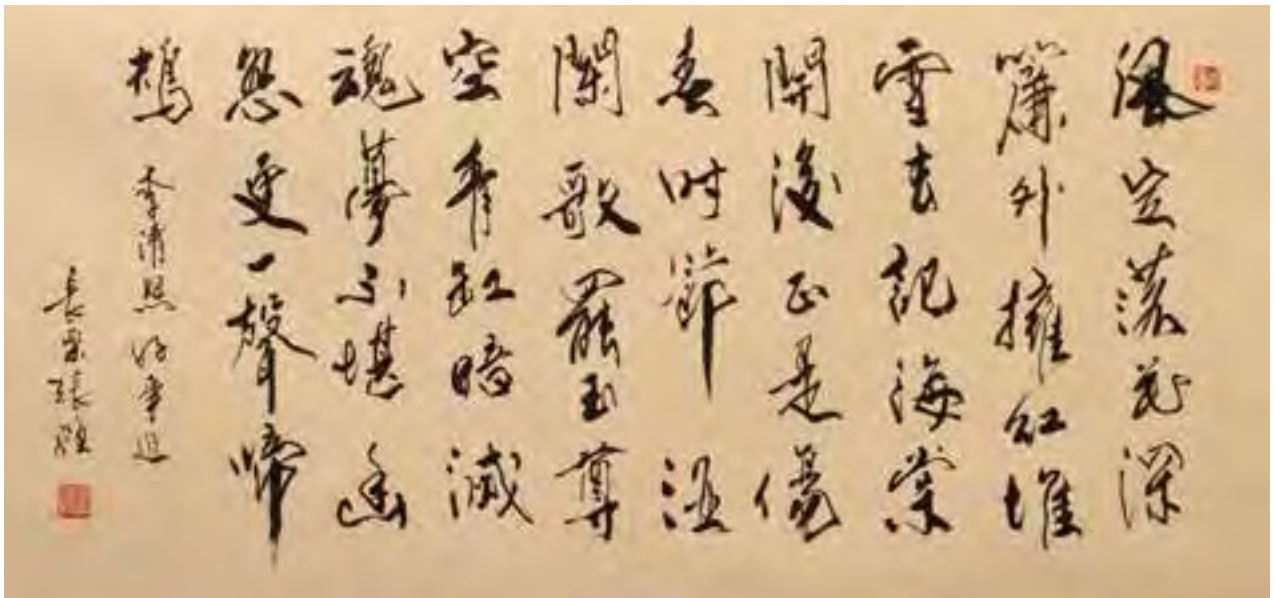 風定落花深
簾外擁紅堆
雪長記海棠
開後正是傷
春時節 酒
闌歌罷玉尊
空青缸暗滅
魂夢不堪幽
怨更一聲啼
鴂 李清照 好事近
長樂張